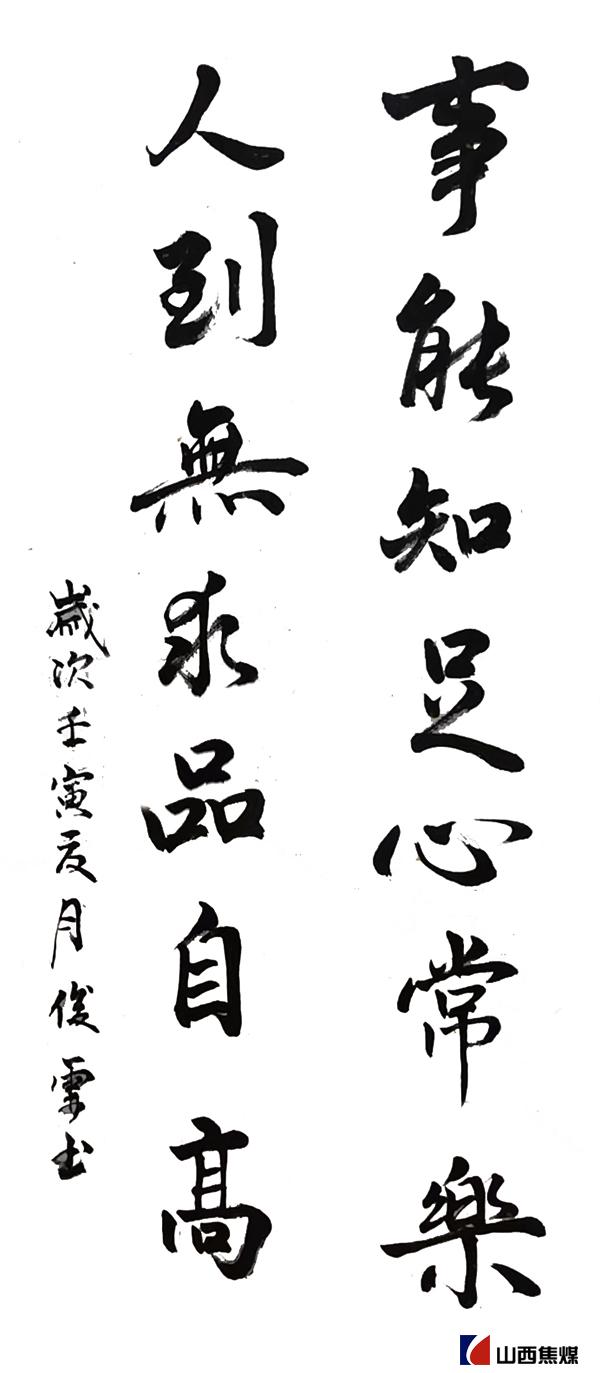 事能知足心常樂
人到無求品自高
歲次壬寅夏月俊雲书
山西焦煤